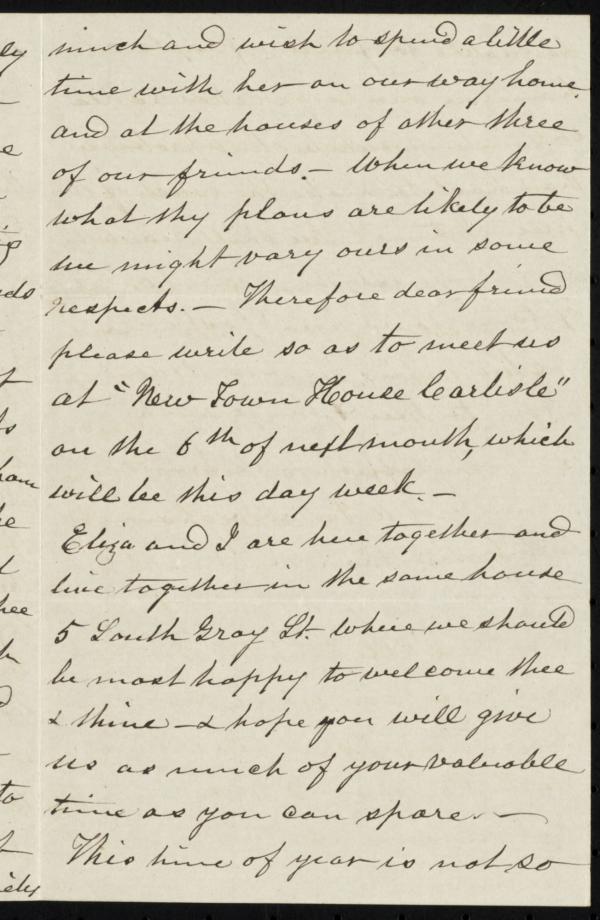 much and wish to spend a little
time with her on our way home
and at the houses of other three
of our friends. — When we know
what thy plans are likely to be
we might vary ours in some
respects. — Therefore dear friend
please write so as to meet us
at "New Town House Carlisle"
on the 6th of next month, which
will be this day week. —
Eliza and I are here together and
live together in the same house
5 South Gray St. where we should
be most happy to welcome thee
& thine — & hope you will give
us as much of your valuable
time as you can spare. —
This time of year is not so